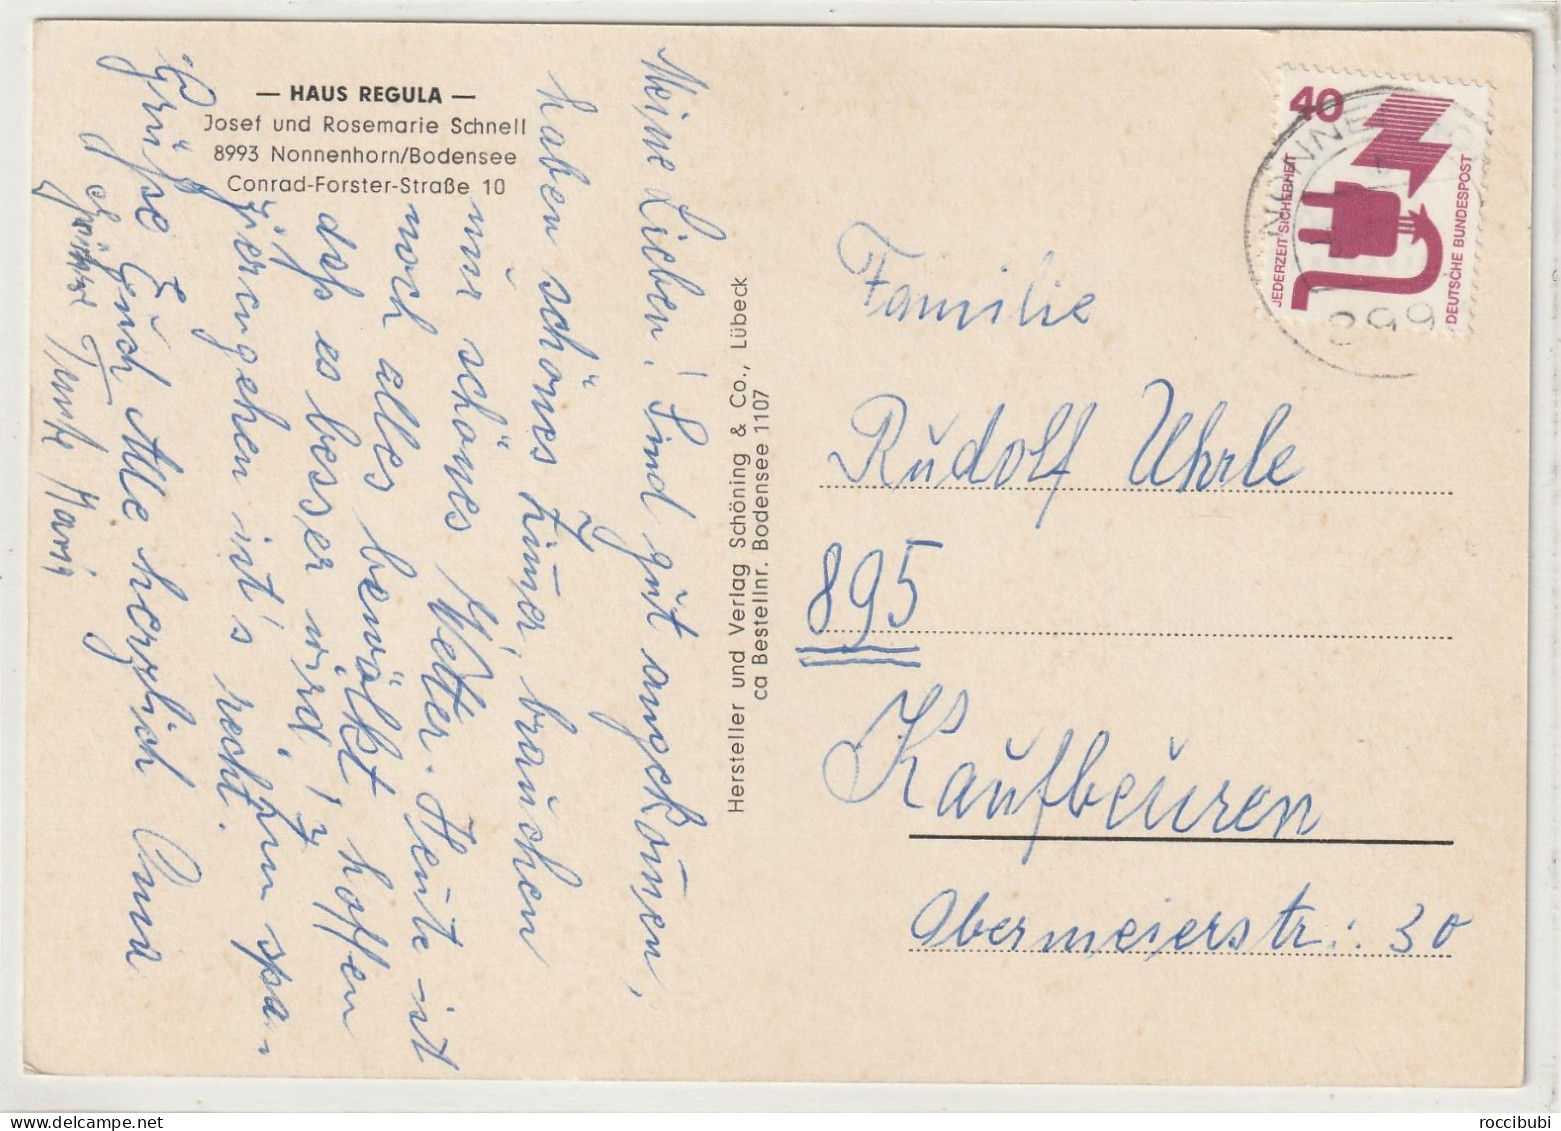 — HAUS REGULA —
Josef und Rosemarie Schnell
8993 Nonnenhorn/Bodensee
Conrad-Forster-Straße 10
Meine Lieben! Sind gut angekom̄en,
haben schönes Zim̄er, brauchen
nur schönes Wetter. Heute ist
noch alles bewölkt, hoffen
daß es besser wird! Z.
zierengehen ist's recht. Zum spa-
Grüße Euch Alle herzlich Oma
Tante Maria
Hersteller und Verlag Schöning & Co., Lübeck
ca Bestellnr. Bodensee 1107
40
JEDERZEIT SICHERHEIT
DEUTSCHE BUNDESPOST
NONNE
899
Familie
Rudolf Uhrle
895
Kaufbeuren
Obermeierstr. 30
roccibubi